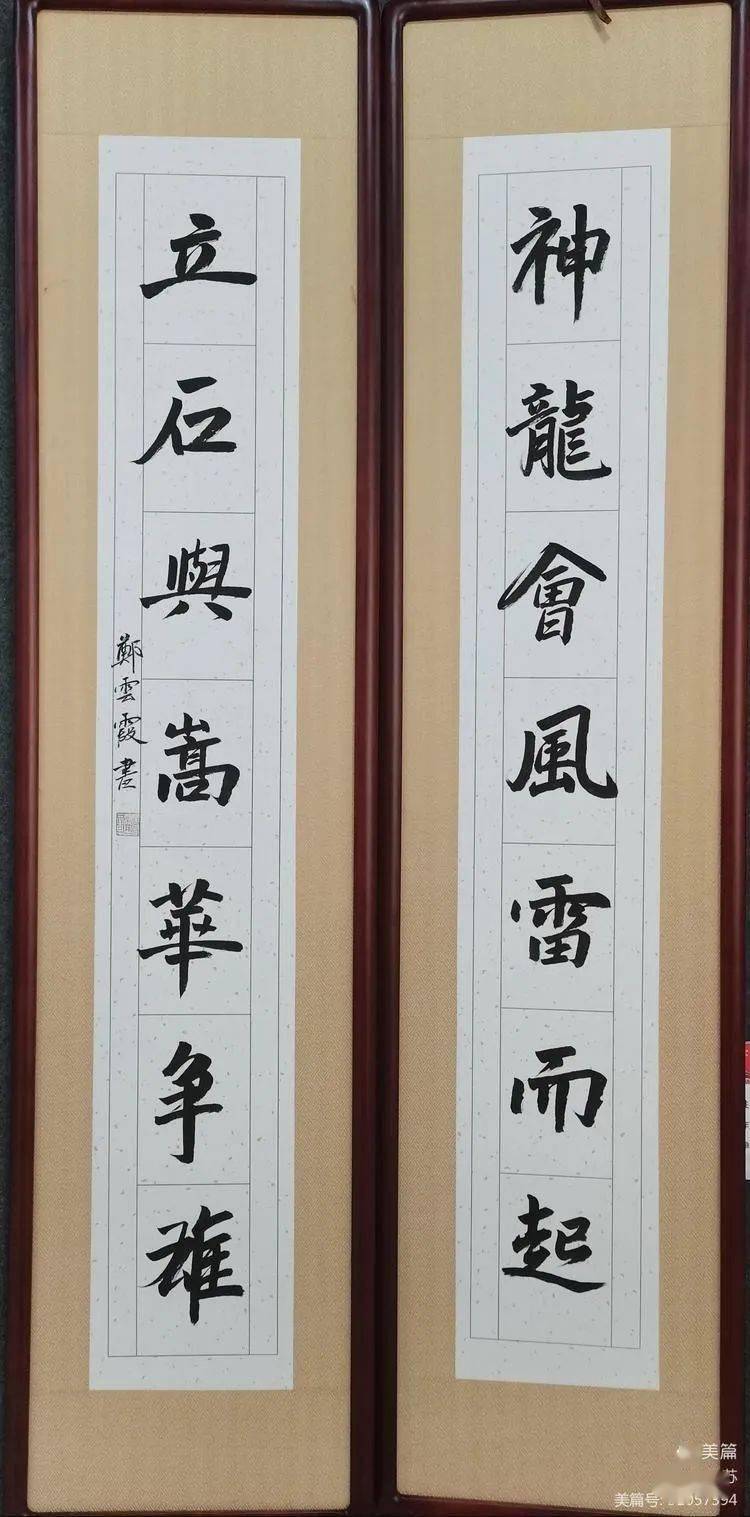 神龍會風雷而起
立石與嵩華争雄
鄭雲霞書
美篇
苏
美篇号: